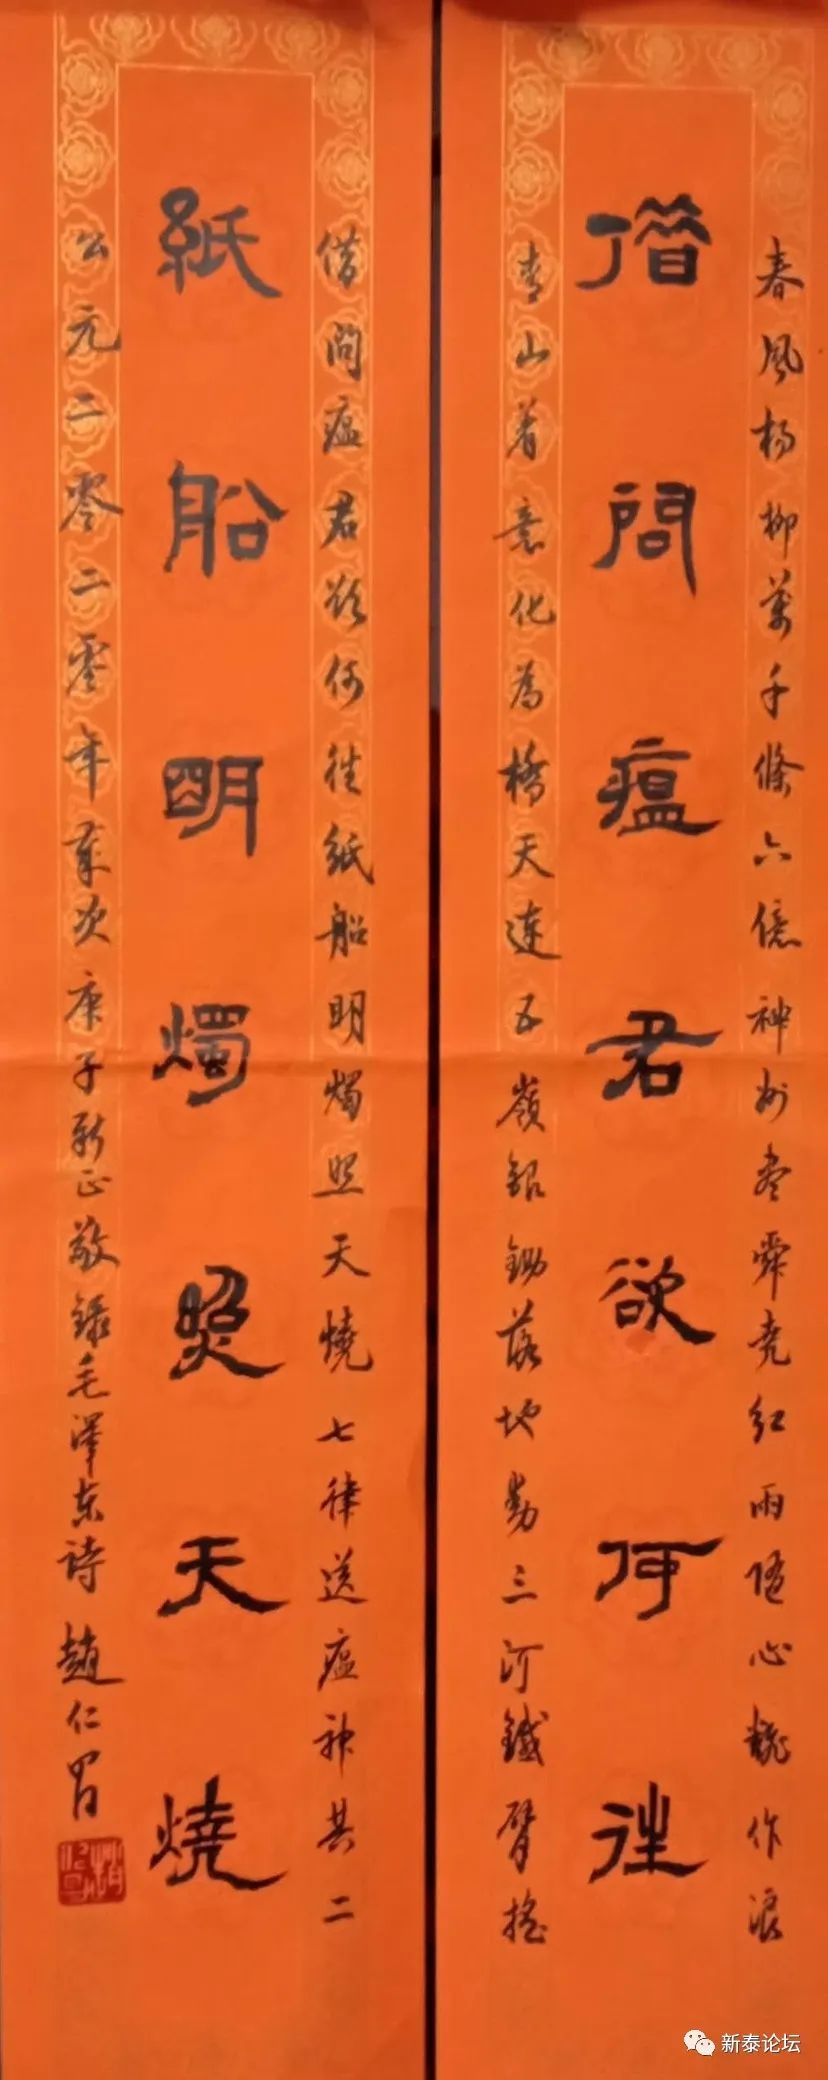 春風楊柳萬千條六億神州盡舜堯紅雨隨心翻作浪
借問瘟君欲何往
青山着意化為橋天連五嶺銀鋤落地動三河鐵臂搖
借問瘟君欲何往紙船明燭照天燒七律送瘟神其二
紙船明燭照天燒
公元二零二零年歲次庚子新正敬錄毛澤東詩 趙仁
新泰论坛